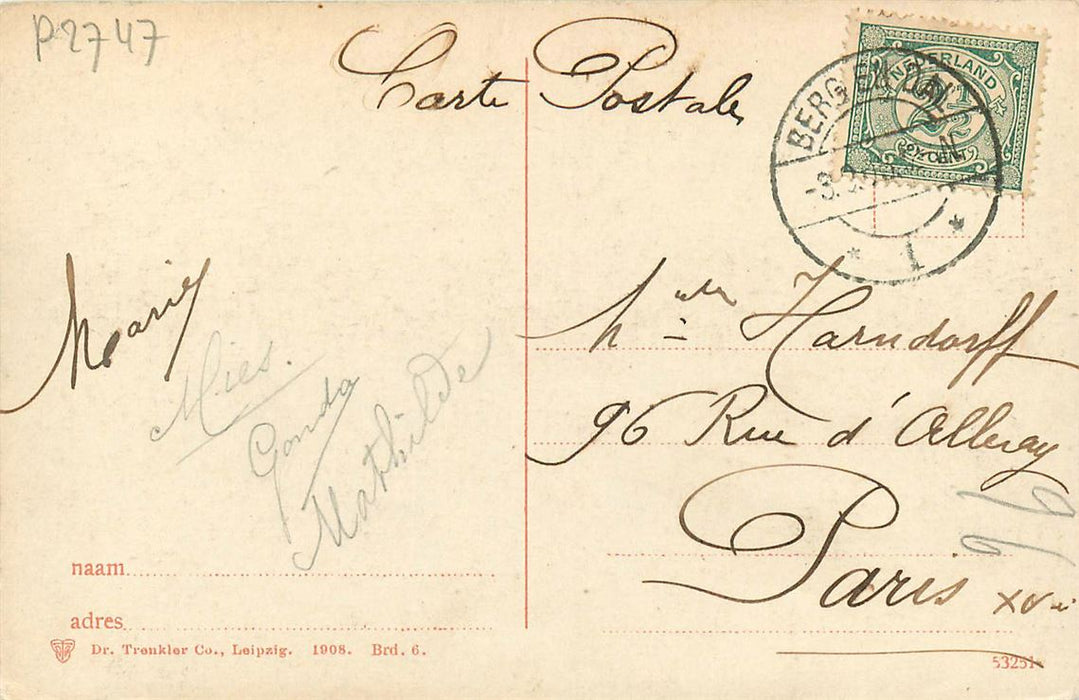 P2747
Carte Postale
NEDERLAND
2½
BERG EN DAL
1
Marie
Mies.
Gonda
Mathilde
Harndorff
96 Rue d'Alleray
Paris XV
96
naam
adres
Dr. Trenkler Co., Leipzig. 1908. Brd. 6.
53251